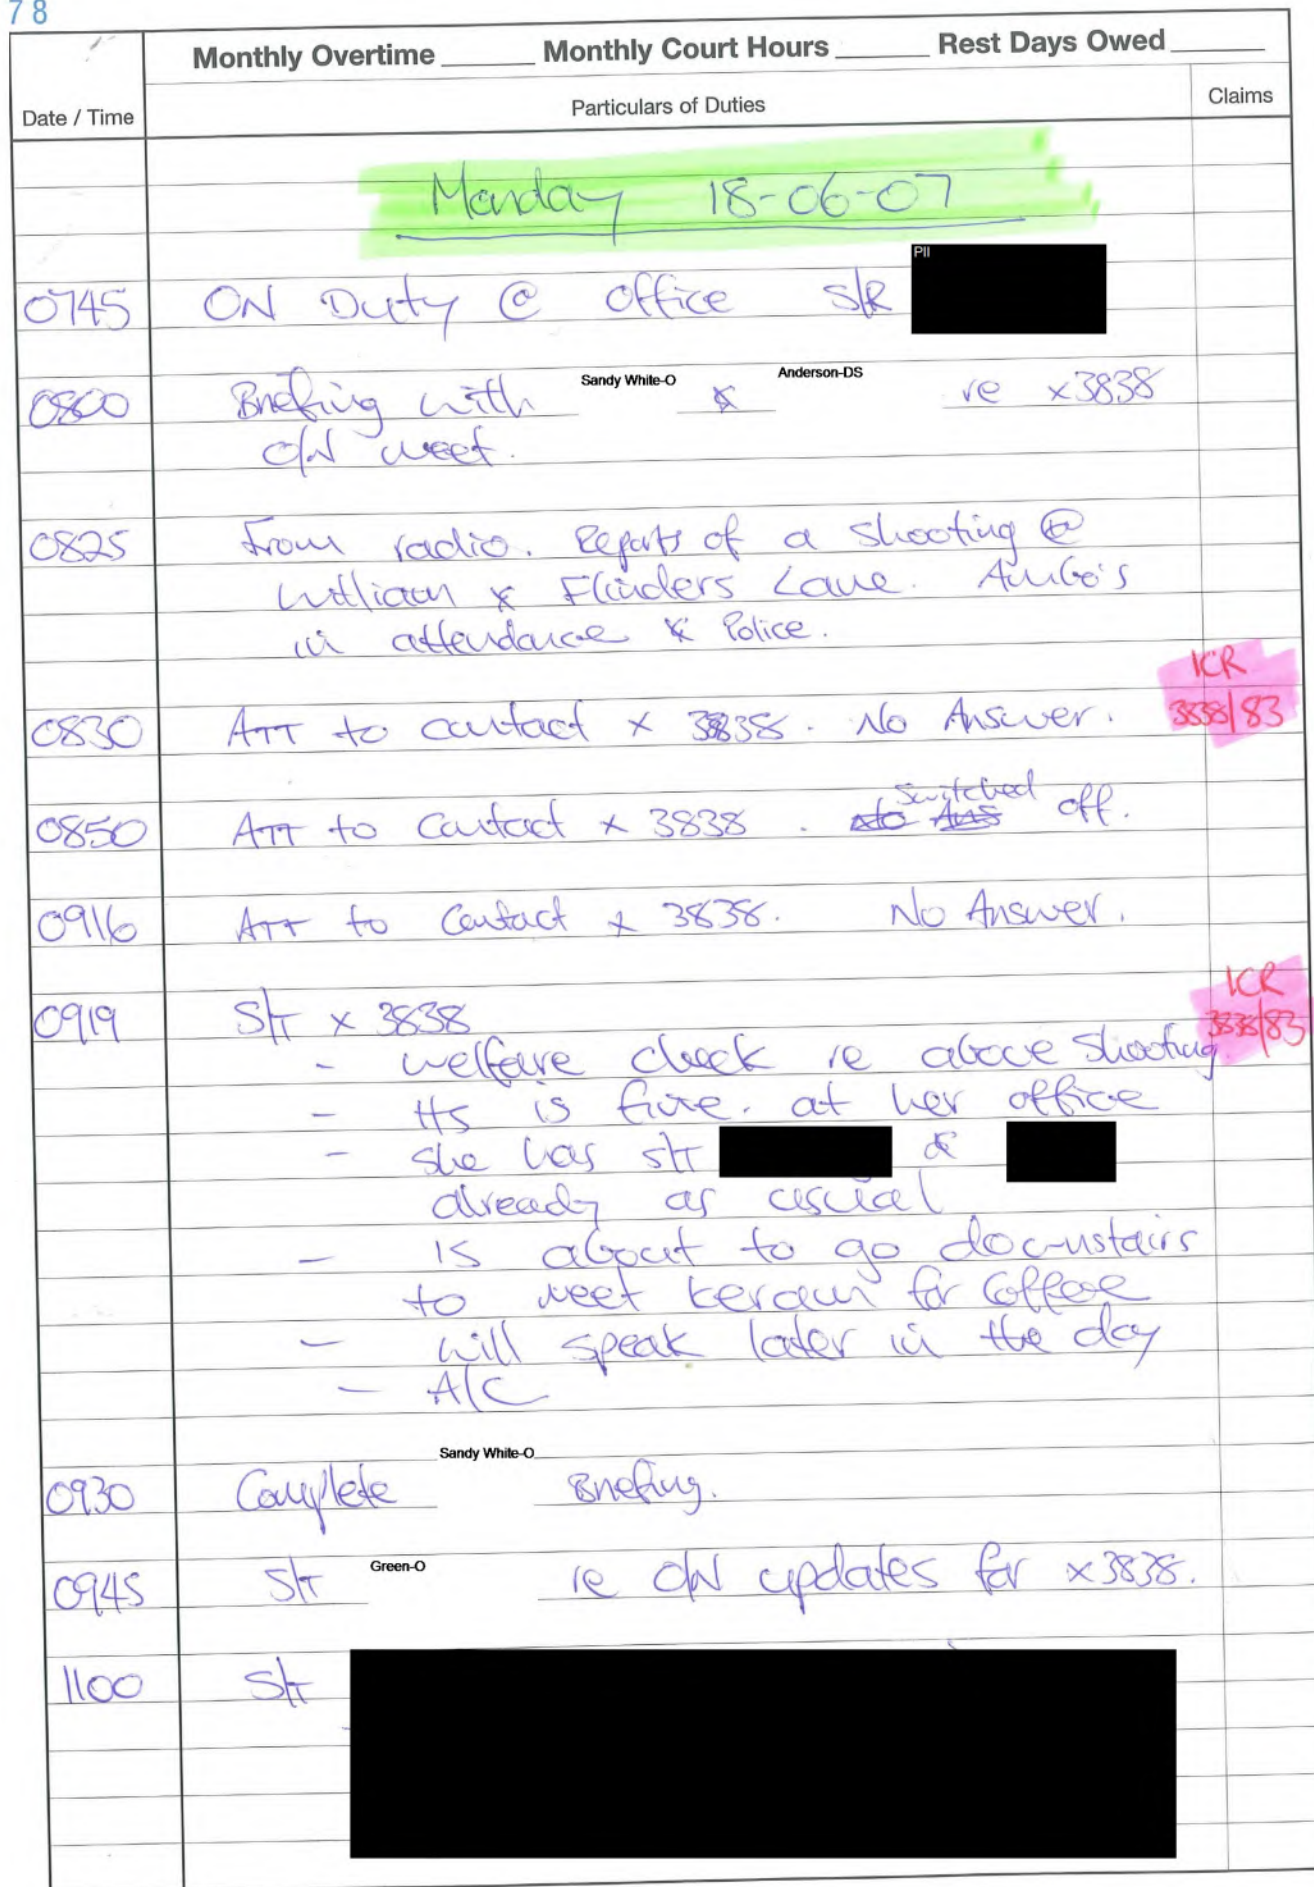 78
Monthly Overtime ______ Monthly Court Hours ______ Rest Days Owed ______
Date / Time Particulars of Duties Claims
Monday 18-06-07
PII
0745 ON Duty @ office S/R
Sandy White-O Anderson-DS
0800 Briefing with & re x3838
O/N meet.
0825 From radio. Reports of a shooting @
William & Flinders Lane. Ambo's
in attendance & Police.
ICR
0830 ATT to contact x 3838. No Answer. 3838/83
switched
0850 ATT to contact x 3838. ~~No Ans~~ off.
0916 ATT to Contact x 3838. No Answer.
ICR
0919 S/T x 3838 3838/83
- welfare check re above shooting
- HS is fine. at her office
- she has S/T &
already as usual
- is about to go downstairs
to meet for coffee
- will speak later in the day
- A/C
Sandy White-O
0930 Complete Briefing.
Green-O
0945 S/T re O/N updates for x3838.
1100 S/T